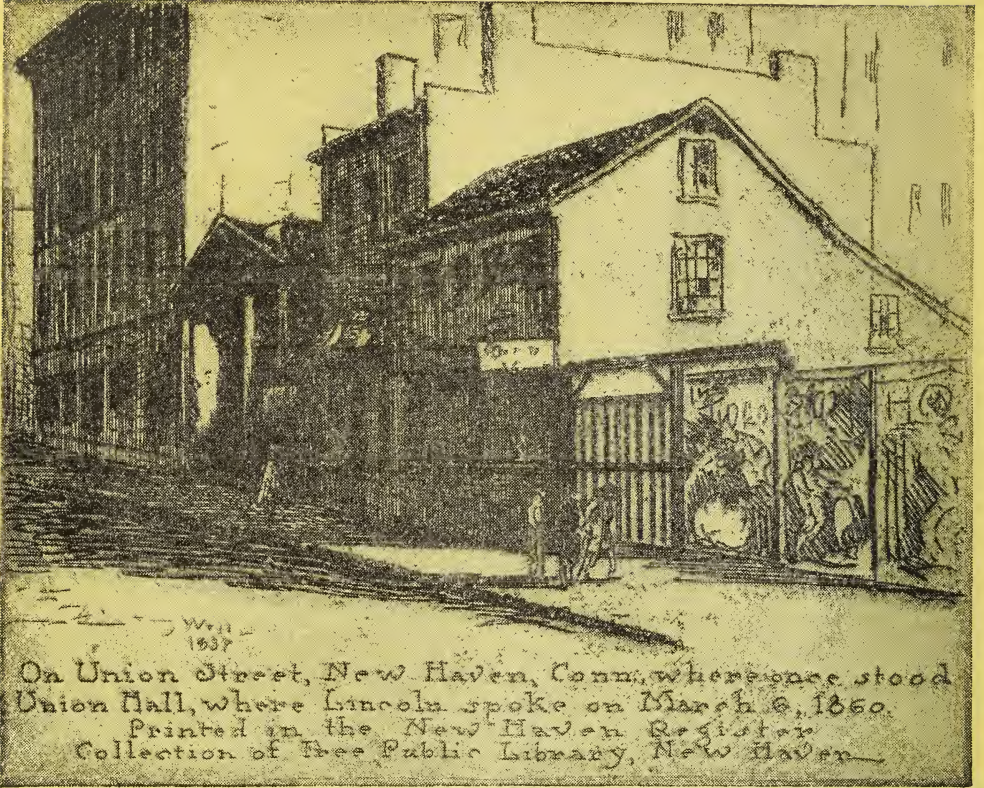 1937
On Union Street, New Haven, Conn., where once stood
Union Hall, where Lincoln spoke on March 6, 1860.
Printed in the New Haven Register
Collection of Free Public Library, New Haven